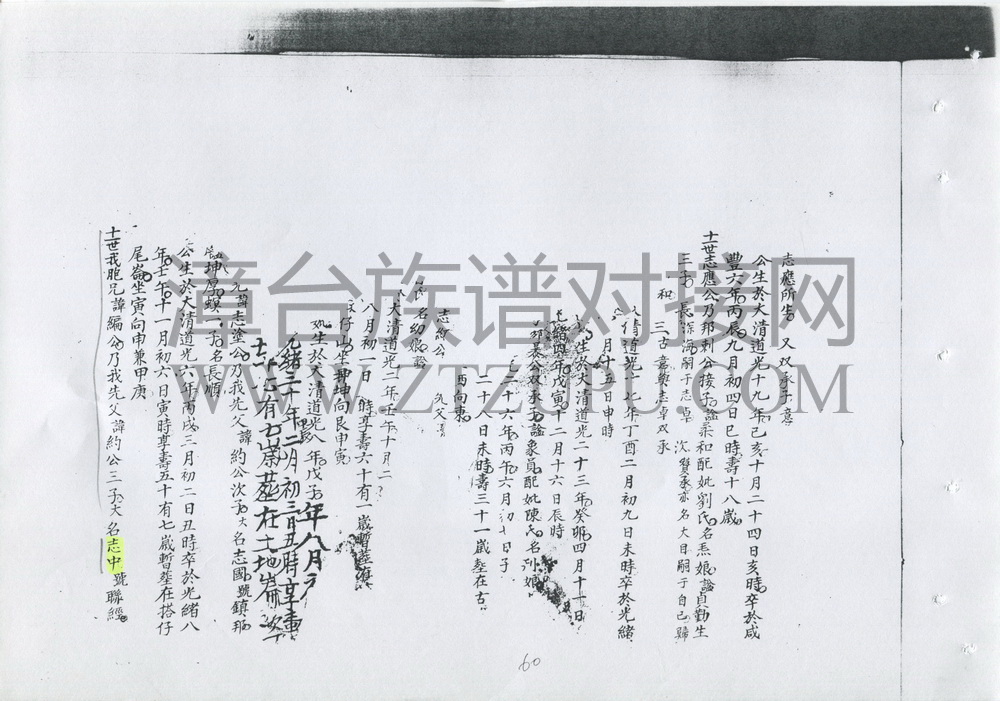 志應所生 又双承子意
公生於大清道光十九年己亥十月二十四日亥時卒於咸
豐六年丙辰九月初四日巳時壽十八歲
十一世志應公乃邦刺公接子諡柔和配妣劉氏名焄娘諡貞勤生
三子 長深海嗣于志卓 次贊承亦名大目嗣于自己歸
和 三古意與志卓双承
清道光十七年丁酉二月初九日未時卒於光緒
月十五日申時
生於大清道光二十三年癸卯四月十一日
光緒四年戊寅十二月十六日辰時
公双承子諡象員配妣陳氏名
二十六年丙午六月初十日子
二十八日未時壽三十一歲塟在古
西向東
志
氏名幼娘諡
大清道光二年壬午十月二
八月初一日 時享壽六十有一歲暫塟
仔山坐坤向艮申寅
妣生於大清道光八年戊子年八月
光緒三十年二月初三日丑時享壽
七十有七歲葬在土地崙
元諱志塗公乃我先父諱約公次子大名志國號鎮
坤厚螟一子名長順
公生於大清道光六年丙戌三月初二日丑時卒於光緒八
年壬午十一月初六日寅時享壽五十有七歲暫塟在搭仔
尾崙坐寅向申兼甲庚
十一世我胞兄諱編公乃我先父諱約公三子大名志中號聯經
60
漳台族谱对接网
WWW.ZTZUPU.COM